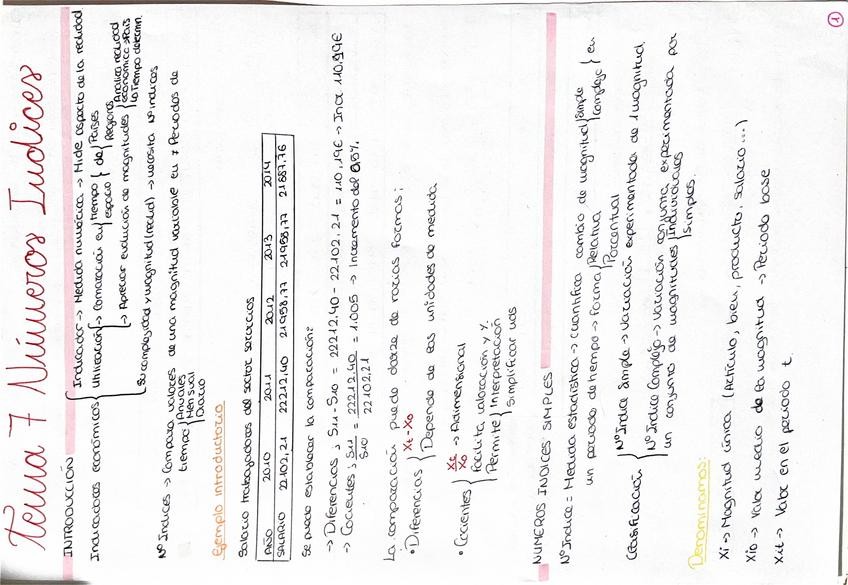 Tema 7 Números Indices
INTRODUCCIÓN
Indicadores económicos
Indicador -> Medida numérica -> Mide aspecto de la realidad
Utilización
-> Comparación en tiempo espacio de Países Regiones
-> Apreciar evolución de magnitudes
Analiza realidad
económica -> País
Tiempo determ.
Su complejidad y magnitud (realid) -> necesita Nº indices
Nº Indices -> Compara valores de una magnitud variable en ≠ Periodos de
tiempo
Anuales
Mensual
Diario
Ejemplo introductorio
Salario trabajadores del sector servicios
AÑO 2010 2011 2012 2013 2014
SALARIO 22102,21 22212,40 21958,77 21958,77 21887,76
Se puede establecer la comparación?
-> Diferencias; S11 - S10 = 22212.40 - 22102.21 = 110,19€ -> Incr 10,99€
-> Cocientes; S11/S10 = 22212.40/22102,21 = 1.005 -> Incremento del 0,5%.
La comparación puede darse de varias formas;
• Diferencias Xt - X0
Depende de las unidades de medida
• Cocientes
Xt/X0 -> Adimensional
Facilita valoración y %.
Permite Interpretación
Simplificar
NUMEROS INDICES SIMPLES
Nº Indice = Medida estadística -> cuantifica cambio de magnitud Simple Compleja en
un periodo de tiempo -> Forma Relativa
Porcentual
Clasificación
Nº Indice Simple -> variación experimentada de 1 magnitud
Nº Indice Complejo -> variación conjunta experimentada por
un conjunto de magnitudes Individuales
Simples.
Denominamos:
Xi -> Magnitud única (Artículo, bien, producto, salario ...)
Xi0 -> Valor medio de la magnitud -> Periodo base
Xit -> Valor en el periodo t.
1